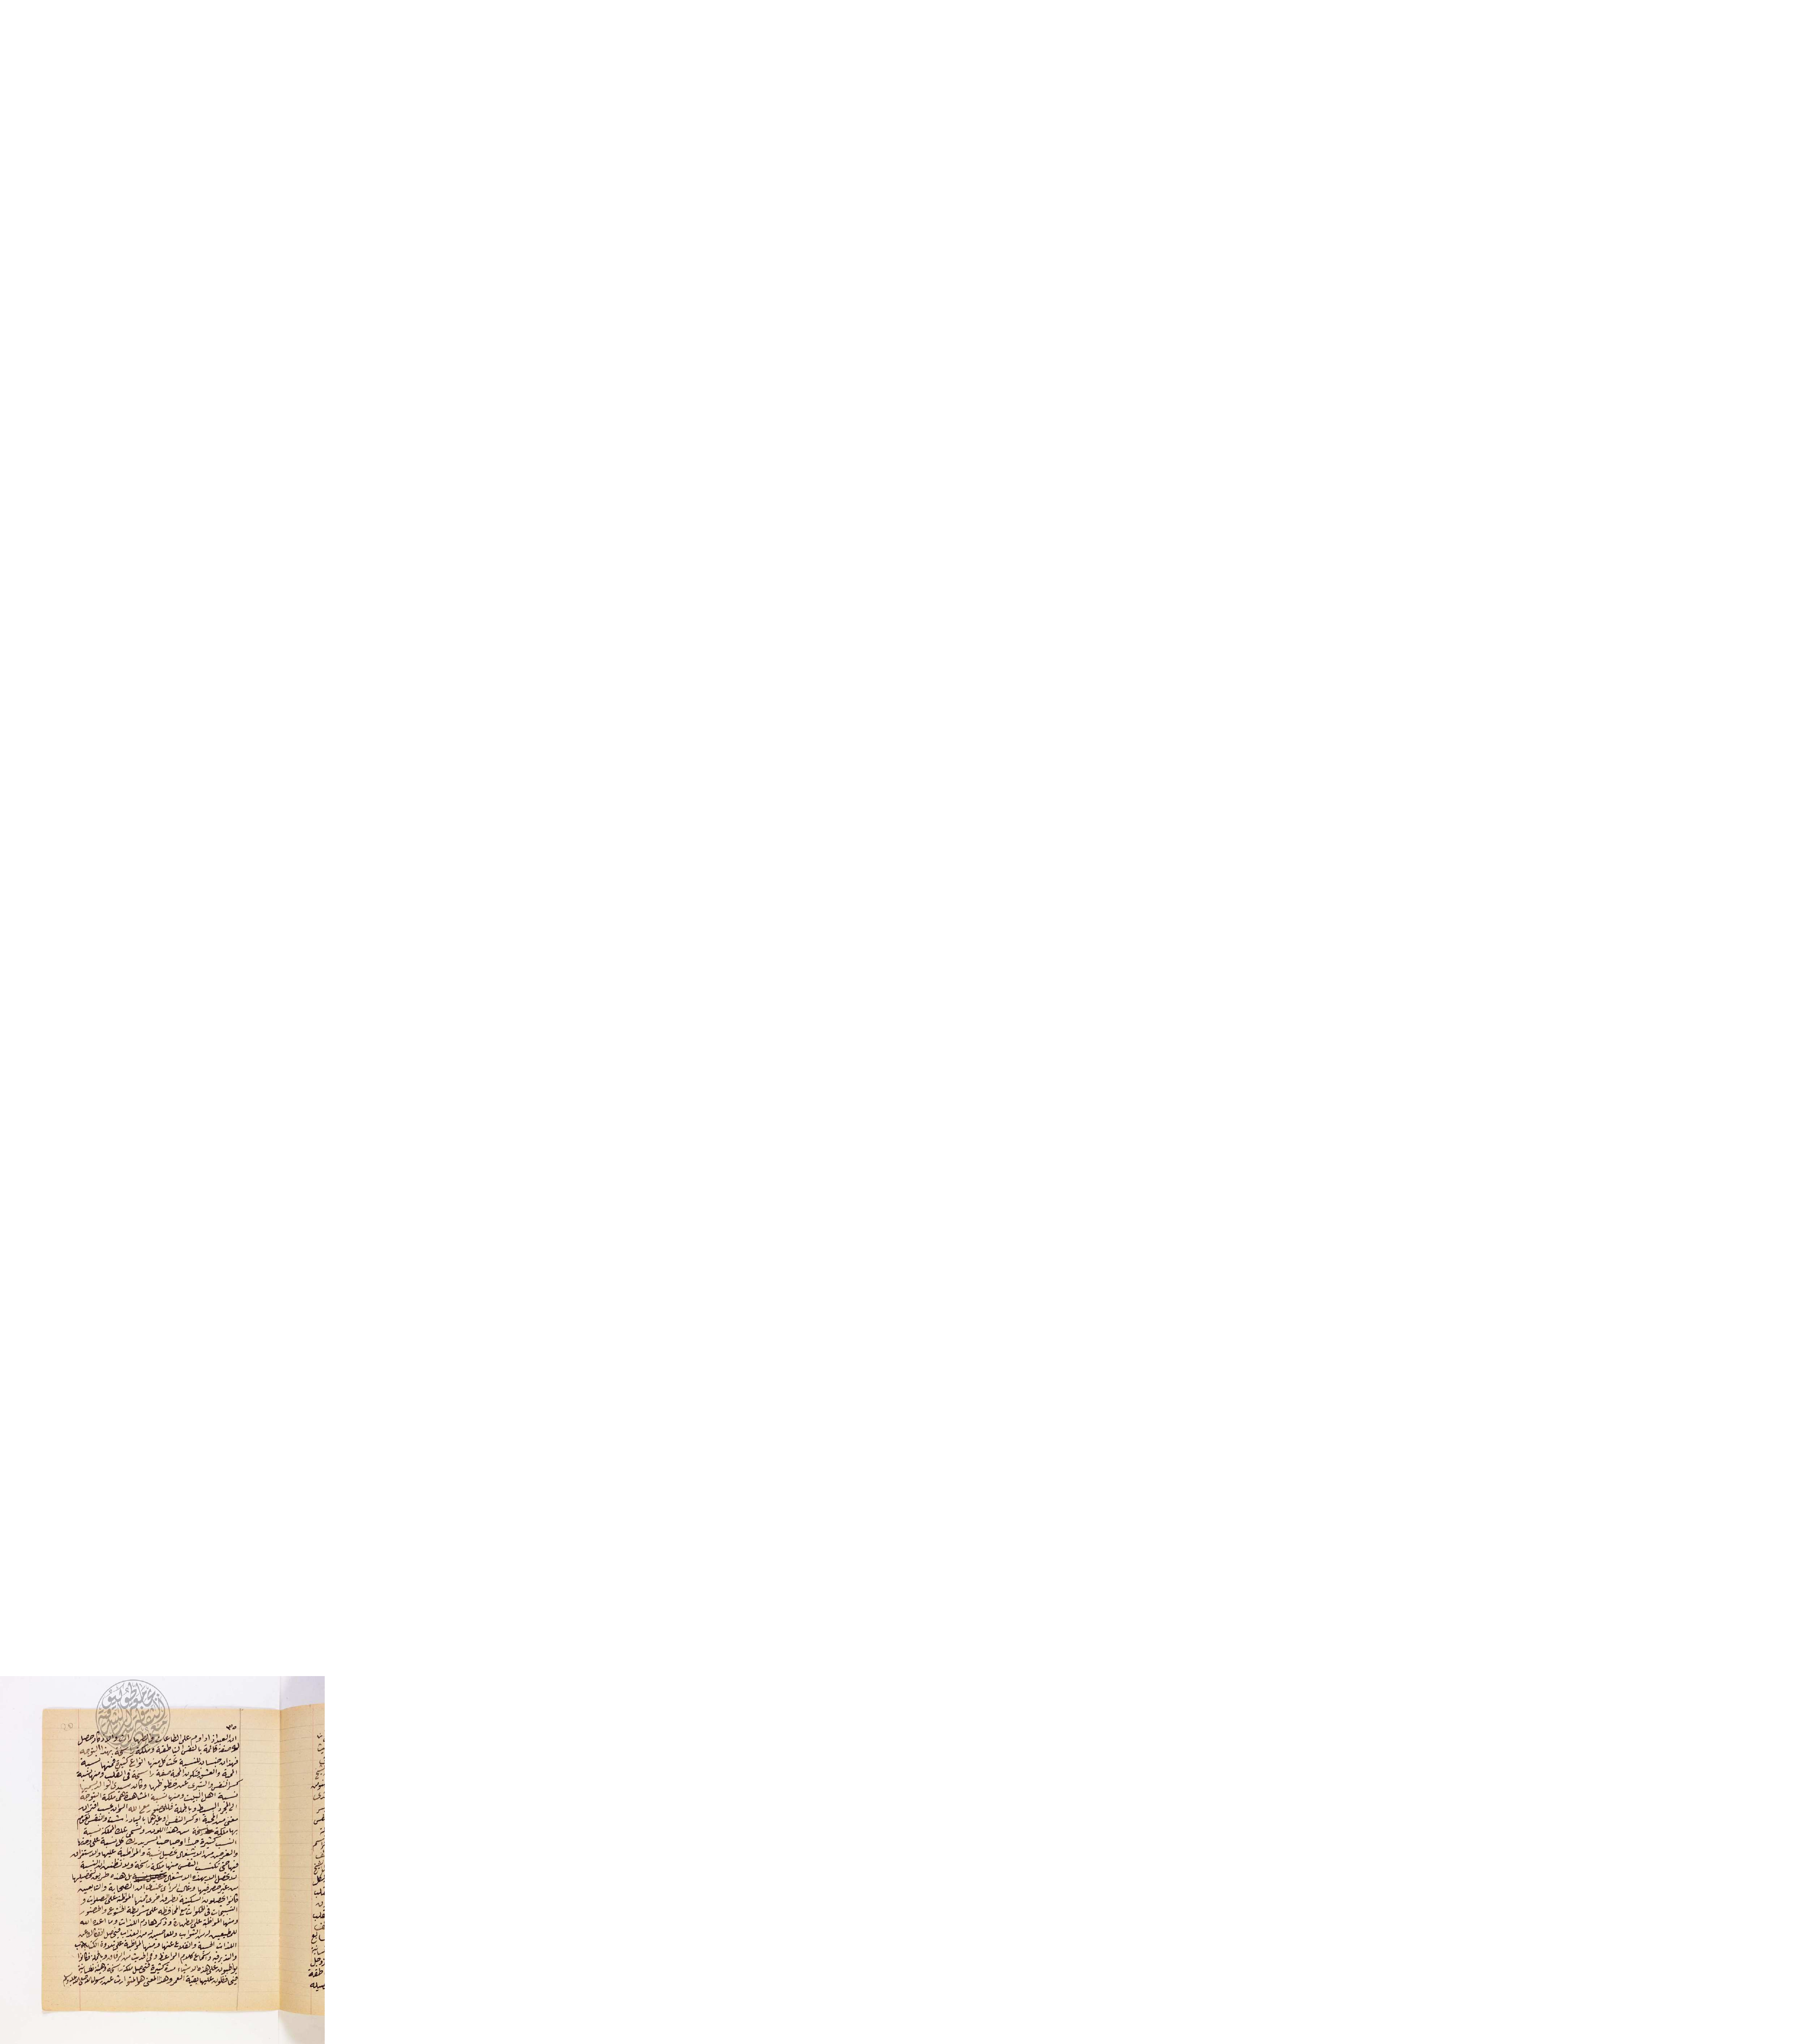 ٣٥
ان العبد اذا داوم على الطاعات والطهارات والاذكار حصل
له صفة قائمة بالنفس الناطقة وملكة راسخة بهذا التوجه
فهذان جنسان للنسبة تحت كل منها انواع كثيرة فمنها نسبة
المحبة والعشق فتكون المحبة صفة راسخة فى القلب ومنها نسبة
كسر النفس والتبرى عن حظوظها وكان سيدى الوالد يسميها
نسبة اهل البيت ومنها نسبة المشاهدة وهى ملكة التوجه
الى المجرد البسيط وبالجملة فللحضور مع الله الوان بحسب اقتران
معنى من المحبة او كسر النفس او غيرهما بالياد داشت والنفس تقوم
بها ملكة راسخة من هذا اللون وتسمى تلك الملكة نسبة
النسب كثيرة جدا وصاحب السر يدرك كل نسبة على حدتها
والغرض من الاشغال تحصيل نسبة والمواظبة عليها والاستغراق
فيها حتى تكتسب النفس منها ملكة راسخة ولا تظنن ان النسبة
لا تحصل الا بهذه الاشغال بل هذه طريق لتحصيلها
من غير حصر فيها وغالب الراى عندى ان الصحابة والتابعين
كانوا يحصلون السكينة بطرق اخرى فمنها المواظبة على الصلوات و
التسبيحات فى الخلوات مع المحافظة على شريطة الخشوع والحضور
ومنها المواظبة على الطهارة وذكر هادم اللذات وما اعده الله
للمطيعين من الثواب وللعاصين من العذاب فيحصل انفكاك عن
اللذات الحسية وانقلاع عنها ومنها المواظبة على تلاوة الكتاب
والتدبر فيه واستماع كلام الواعظ وما فى الحديث من الرقاق وبالجملة فكانوا
يواظبون على هذه الاشياء مدة كثيرة فتحصل ملكة راسخة وهيئة نفسانية
فيحافظون عليها بقية العمر وهذا المعنى هو المتوارث عن رسول الله صلى الله عليه وسلم